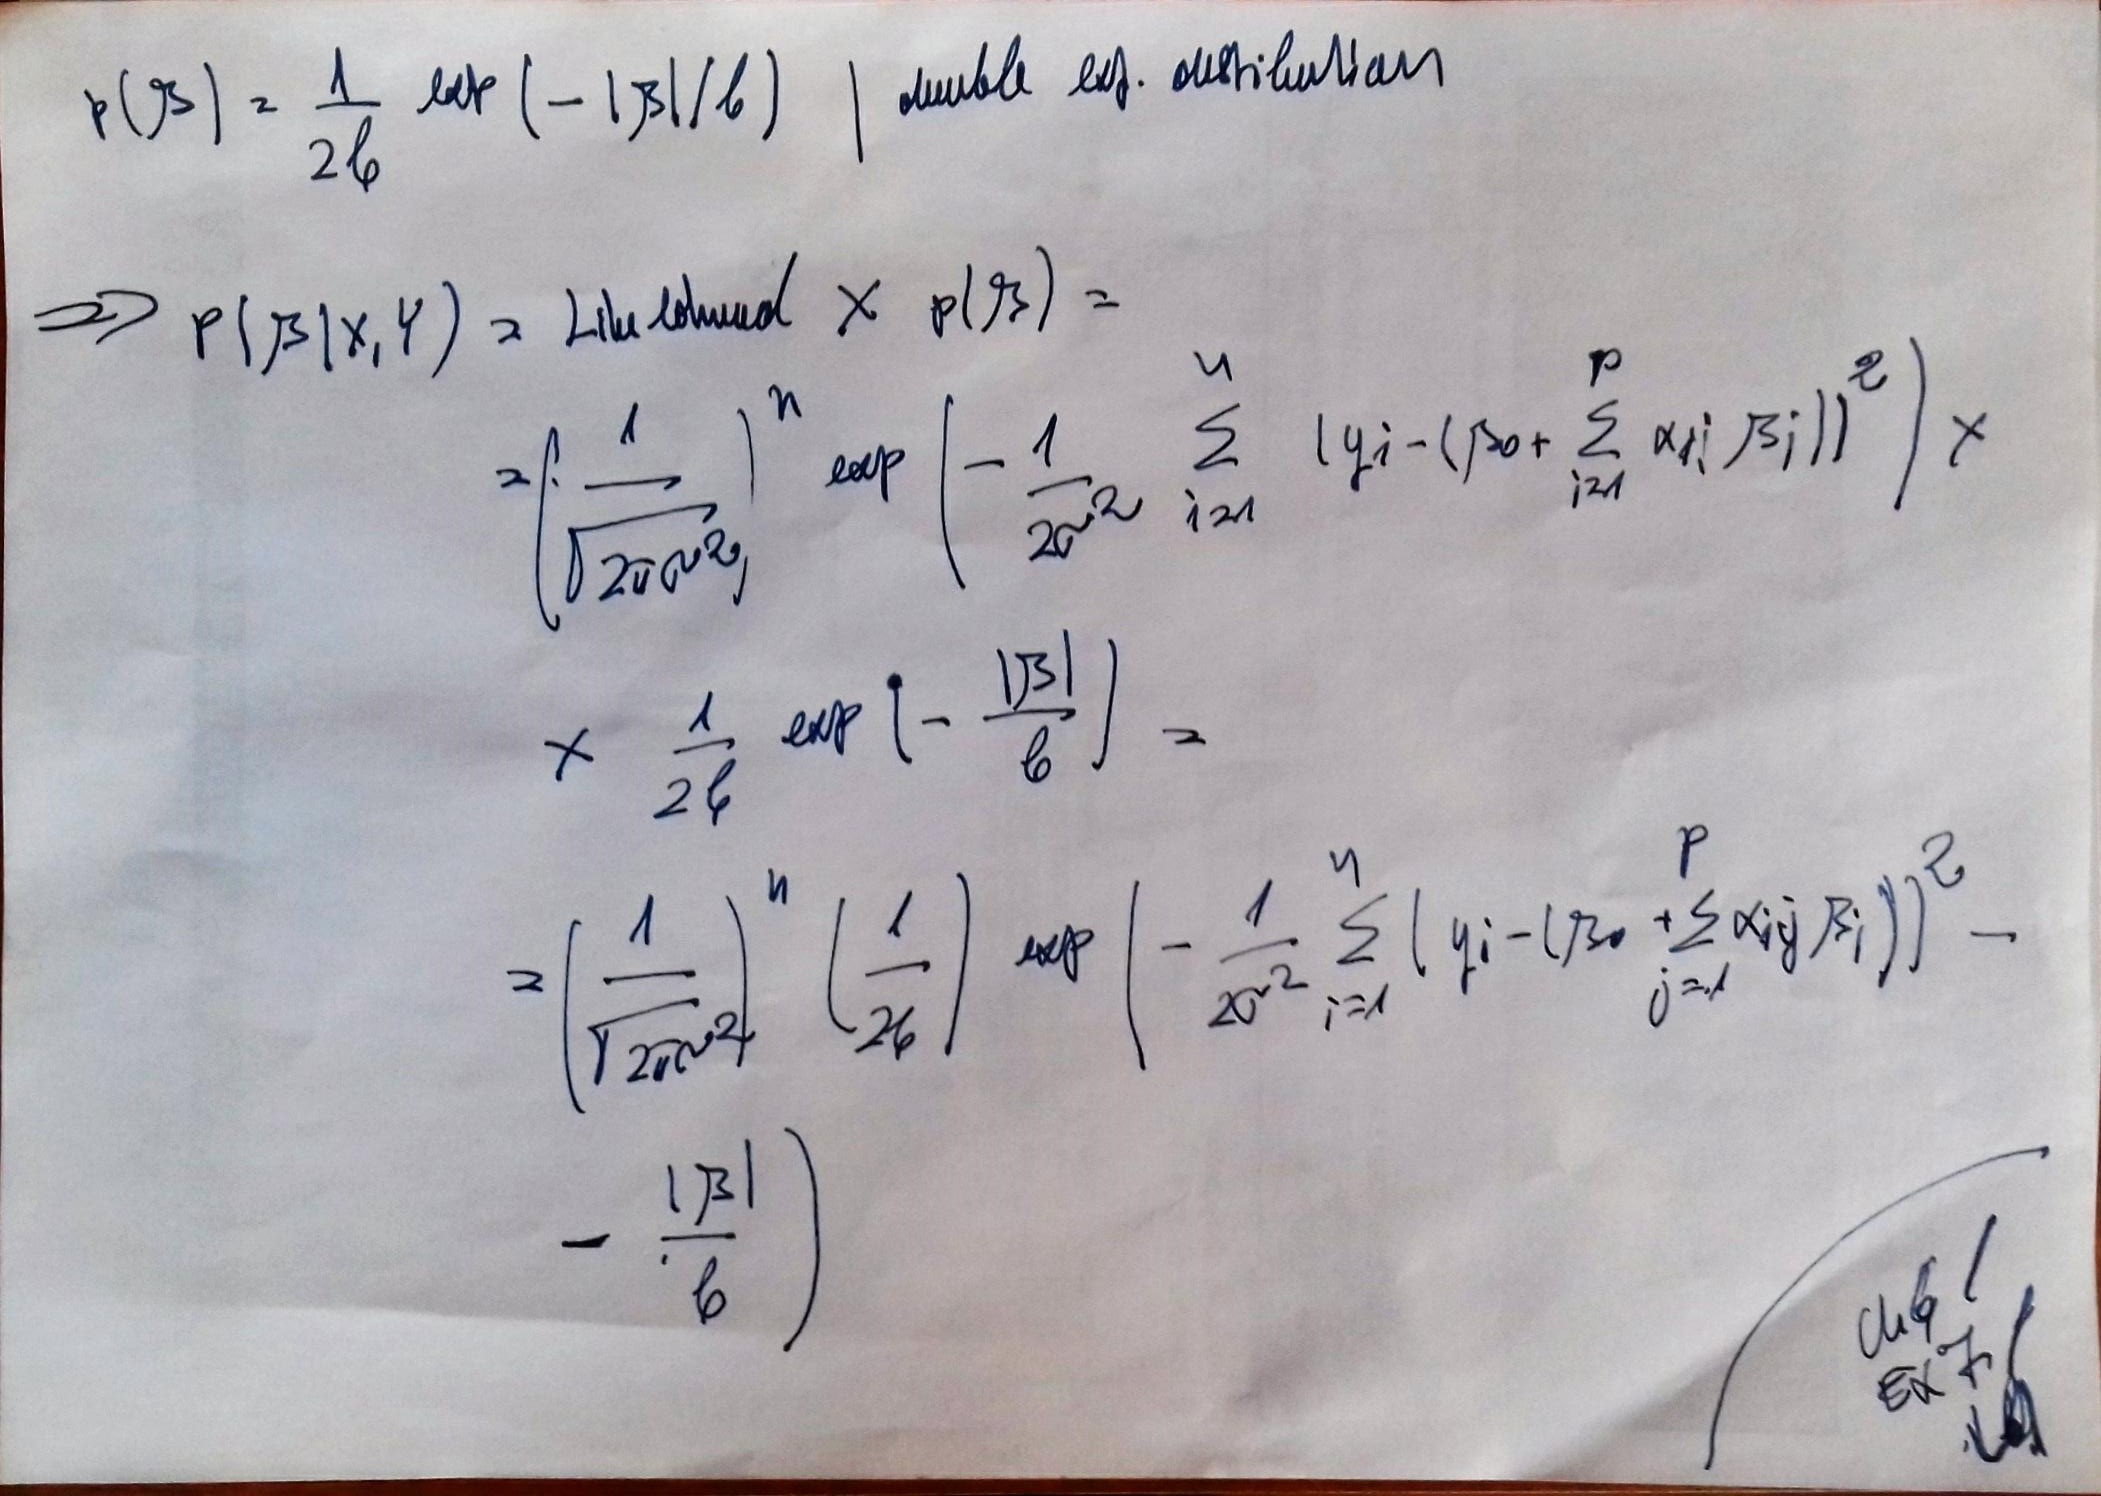 p(β) = 1/2b exp (-|β|/b) | double exp. distribution
=> P(β|X,Y) = Likelihood × p(β) =
= (1/√2πσ²)ⁿ exp (- 1/2σ² Σⁿᵢ₌₁ (yi-(β0 + Σᵖᵢ₌₁ xij βj))²) ×
× 1/2b exp (- |β|/b) =
= (1/√2πσ²)ⁿ (1/2b) exp (- 1/2σ² Σⁿᵢ₌₁ (yi-(β0 + Σᵖⱼ₌₁ xij βj))² -
- |β|/b)
Ch6
EX 7